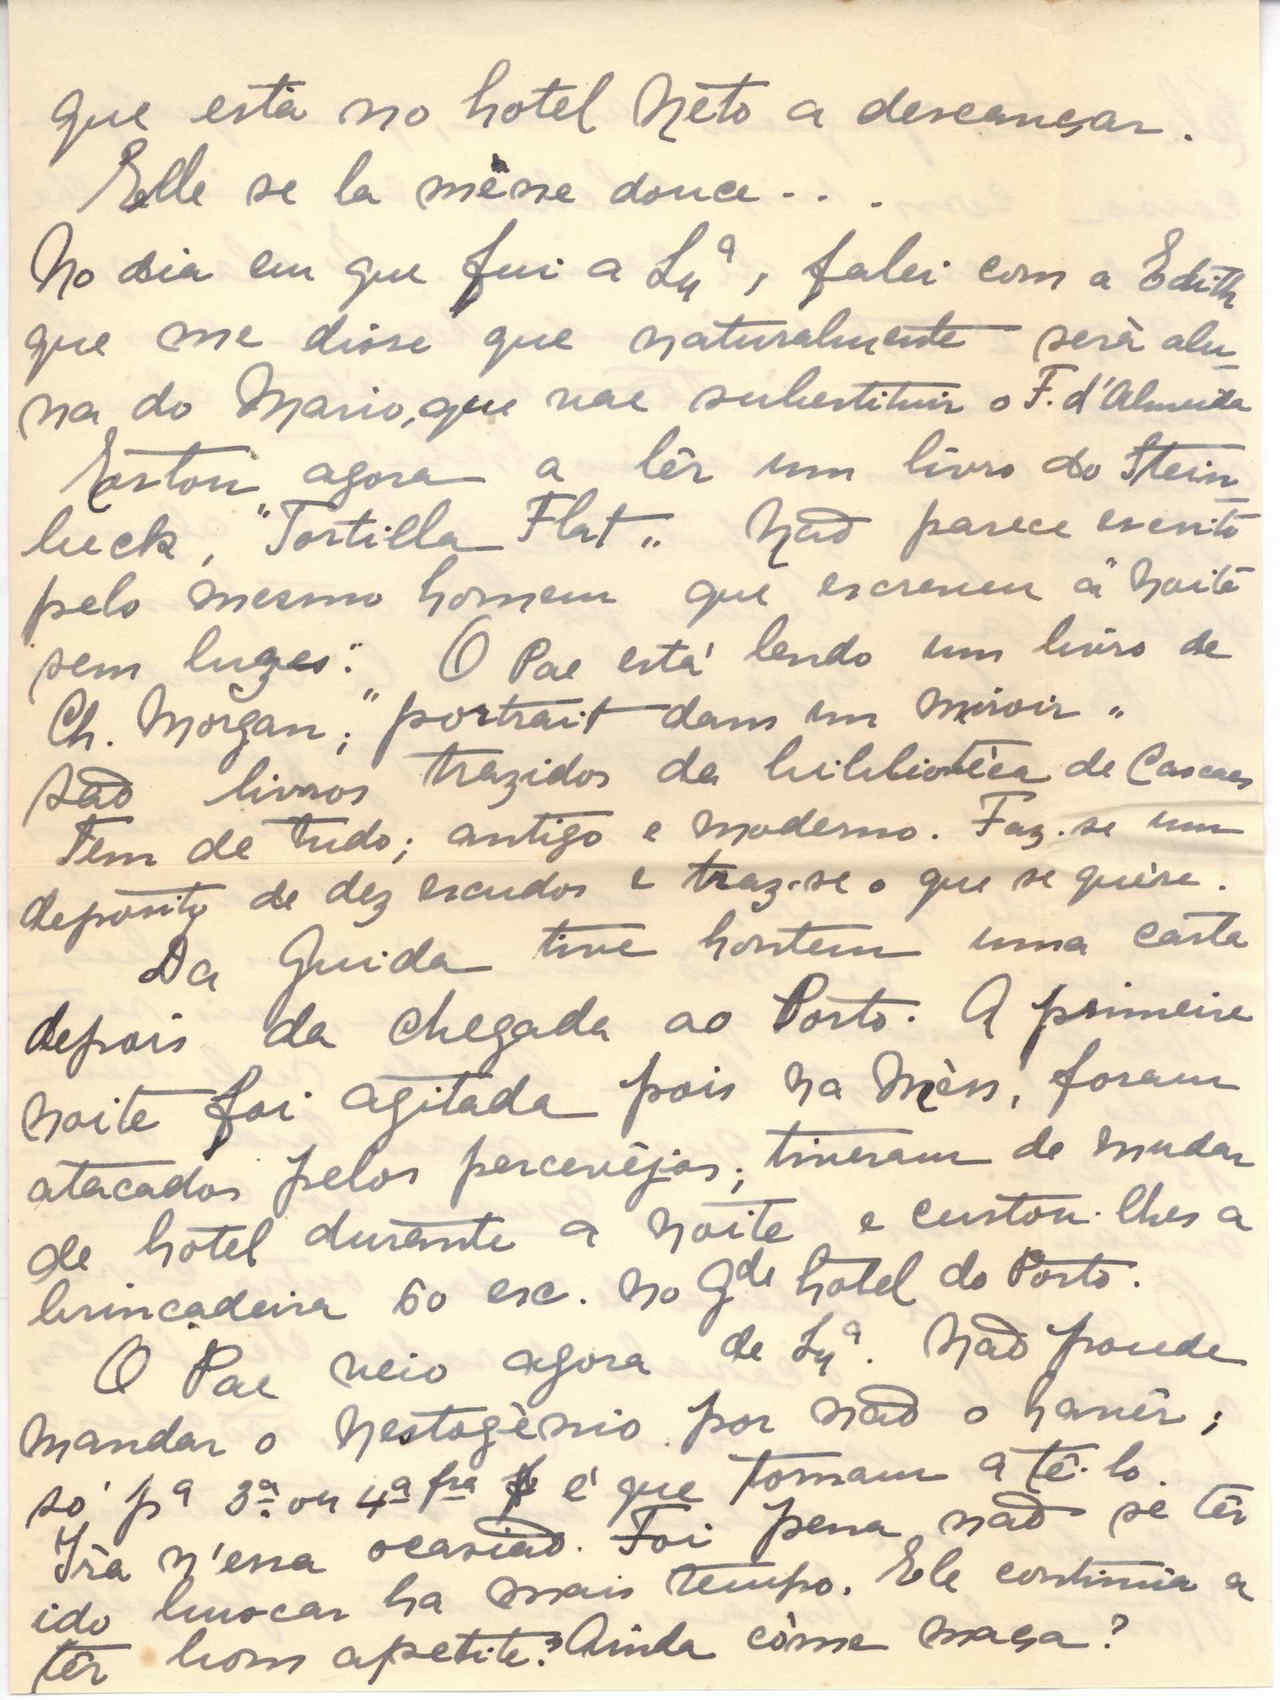 que està no hotel Nèto a descançar.
Elle se la mène douce...
No dia em que fui a Lxª, falei com a Edith
que me disse que naturalmente serà alu-
na do Mario, que vae substituir o F. d'Almeida
Estou agora a lêr um livro do Stein-
beck, "Tortilla Flat". Não parece escrito
pelo mesmo homem que escreveu a "Noite
sem luzes". O Pae está lendo um livro de
Ch. Morgan; "portrait dans un miroir"
São livros trazidos da bibliotèca de Cascaes
Tem de tudo; antigo e moderno. Faz-se um
deposito de dez escudos e traz-se o que se quère.
Da Guida tive hontem uma carta
depois da chegada ao Porto. A primeira
noite foi agitada pois na Mèss, foram
atacados pelos percevêjos; tiveram de mudar
de hotel durante a noite e custou-lhes a
brincadeira 60 esc. no Gde hotel do Porto.
O Pae veio agora de Lxª. Não poude
mandar o Nestogènio por não o havêr;
só pª 3ª ou 4ª fra é que tornam a tê-lo.
Irà n'essa ocasião. Foi pena não se têr
ido buscar ha mais tempo. Ele continúa a
têr bom apetite? Ainda còme maça?